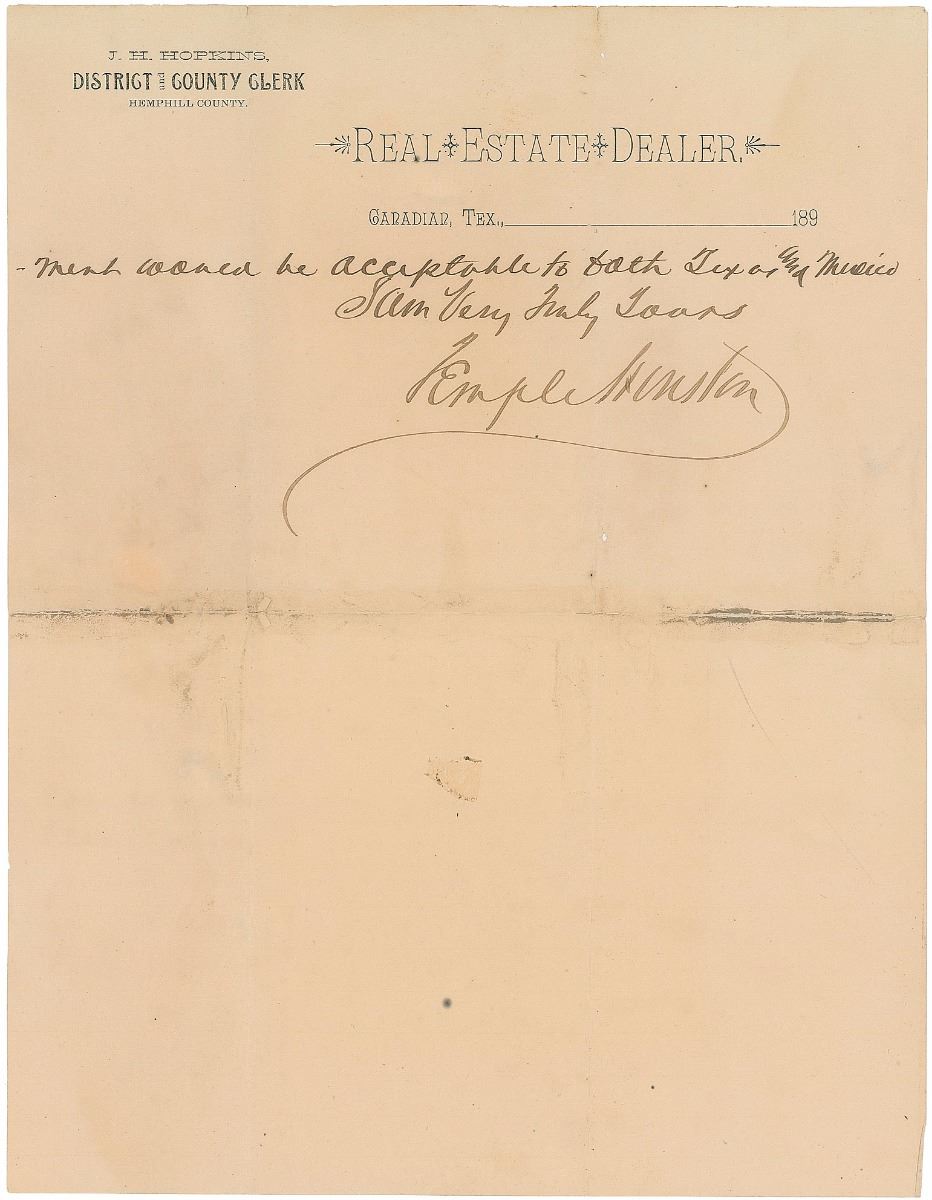 J. H. HOPKINS,
DISTRICT and COUNTY CLERK
HEMPHILL COUNTY.
REAL ESTATE DEALER.
CANADIAN, TEX., 189
-ment would be acceptable to both Texas and Mexico
I am Very Truly Yours
Temple Houston